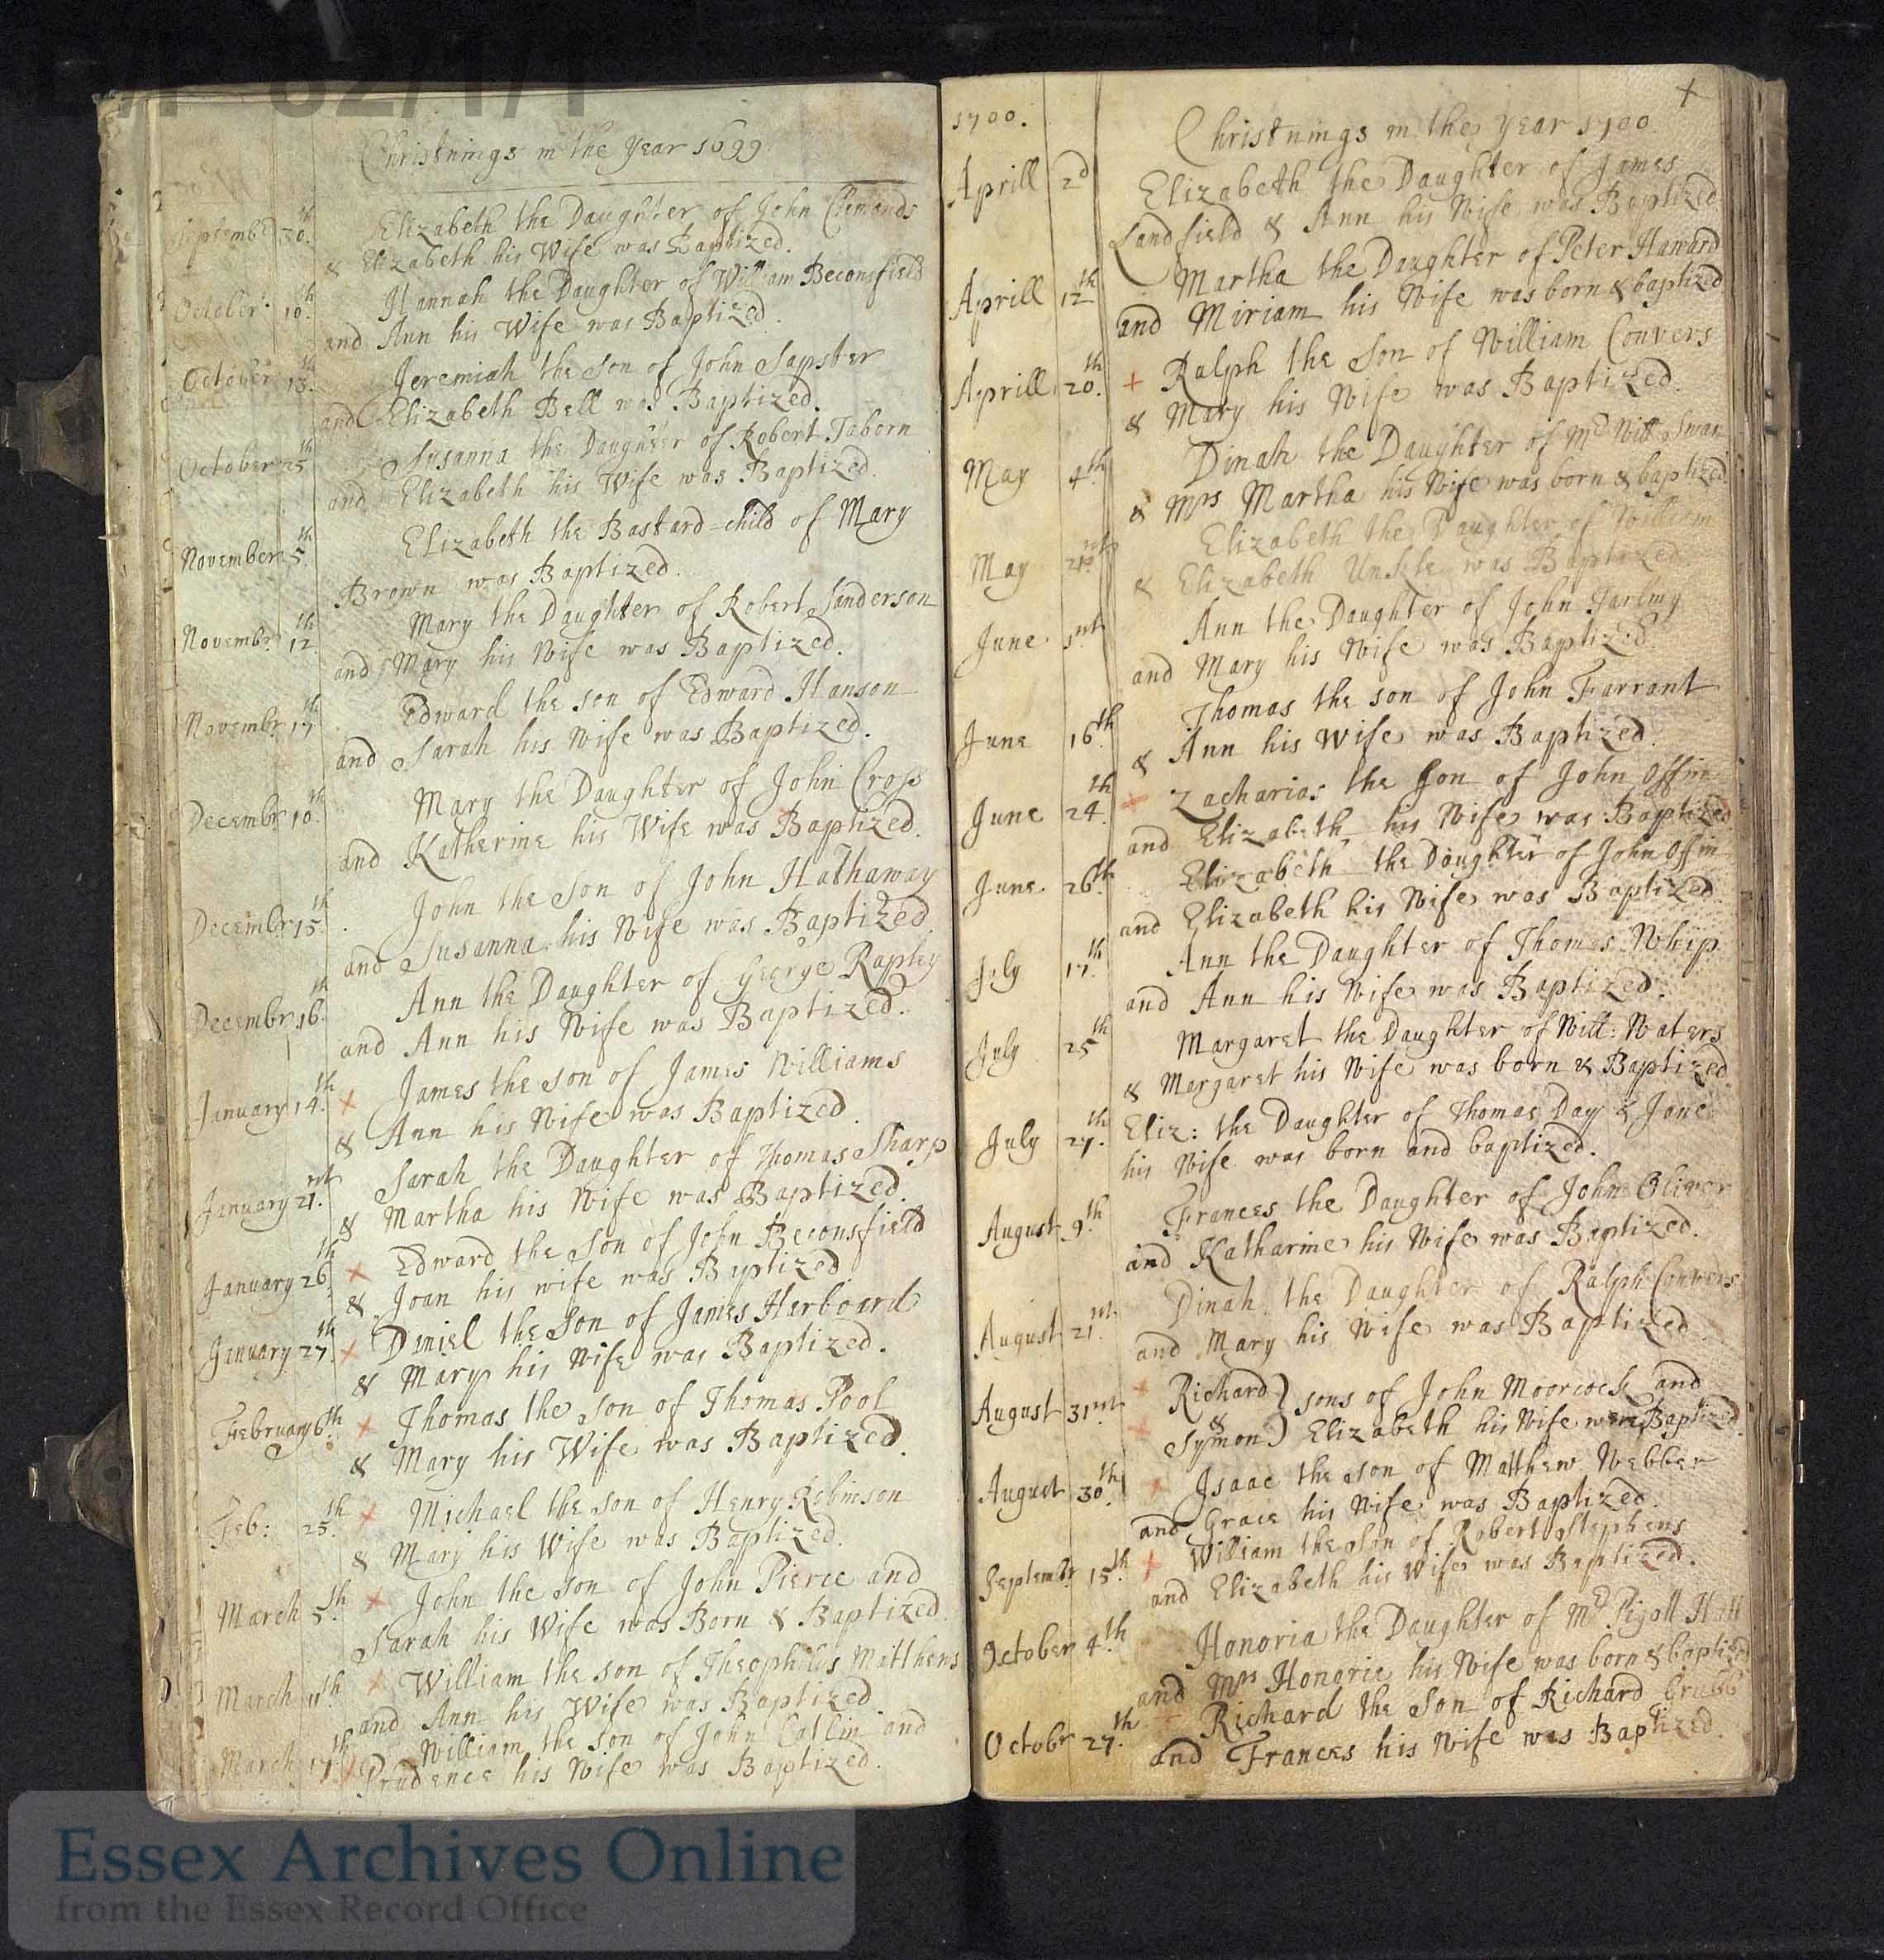 D/P 62/1/1
Christnings in the Year 1699
September 30th. Elizabeth the Daughter of John Clemands
& Elizabeth his Wife was Baptized.
October 10th. Hannah the Daughter of William Beconsfield
and Ann his Wife was Baptized.
October 13th. Jeremiah the son of John Sapster
and Elizabeth Bell was Baptized.
October 25th Susanna the Daughter of Robert Taborn
and Elizabeth his Wife was Baptized.
November 5th. Elizabeth the Bastard=child of Mary
Brown was Baptized.
Novembr. 12th Mary the Daughter of Robert Sanderson
and Mary his Wife was Baptized.
Novembr 17th Edward the son of Edward Hanson
and Sarah his Wife was Baptized.
Decembr 10th. Mary the Daughter of John Cross
and Katherine his Wife was Baptized.
Decembr 15th. John the Son of John Hathaway
and Susanna his Wife was Baptized.
Decembr 16th. Ann the Daughter of George Rapley
and Ann his Wife was Baptized.
January 14th. + James the son of James Williams
& Ann his Wife was Baptized.
January 21st. Sarah the Daughter of Thomas Sharp
& Martha his Wife was Baptized.
January 26th + Edward the Son of John Beconsfield
& Joan his wife was Baptized
January 27th. + Daniel the Son of James Harboard
& Mary his Wife was Baptized.
February 6th. + Thomas the Son of Thomas Pool
& Mary his Wife was Baptized.
Feb: 25th. + Michael the son of Henry Robinson
& Mary his Wife was Baptized.
March 5th. + John the Son of John Pierce and
Sarah his Wife was Born & Baptized.
March 11th + William the son of Theophilus Matthews
and Ann his Wife was Baptized
March 17th + William the son of John Catlin and
Prudence his Wife was Baptized.
1700. Christnings in the Year 1700.
Aprill 2d Elizabeth the Daughter of James
Landfield & Ann his Wife was Baptized.
Aprill 12th Martha the Daughter of Peter Haward
and Miriam his Wife was born & baptized
Aprill 20th. + Ralph the Son of William Convers
& Mary his Wife was Baptized.
May 4th. Dinah the Daughter of Mr Will: Swan
& Mrs Martha his Wife was born & baptized.
May 21st Elizabeth the Daughter of William
& Elizabeth Unkle was Baptized.
June 1st. Ann the Daughter of John
and Mary his Wife was Baptized.
June 16th. Thomas the son of John Farrant
& Ann his Wife was Baptized.
June 24th. + Zacharias the Son of John Offin
and Elizabeth his Wife was Baptized.
June 26th. Elizabeth the Daughter of John Offin
and Elizabeth his Wife was Baptized.
July 17th. Ann the Daughter of Thomas Whip
and Ann his Wife was Baptized.
July 25th Margaret the Daughter of Will: Waters
& Margaret his Wife was born & Baptized.
July 27th. Eliz: the Daughter of Thomas Day & Jane
his Wife was born and baptized.
August 9th. Frances the Daughter of John Oliver
and Katharine his Wife was Baptized.
August 21st. Dinah the Daughter of Ralph Convers
and Mary his Wife was Baptized.
August 31st + Richard } sons of John Moorcock and
&
+ Symon } Elizabeth his Wife were Baptized.
August 30th. + Isaac the son of Matthew Webber
and Grace his Wife was Baptized.
Septembr. 15th. + William the Son of Robert Stephens
and Elizabeth his Wife was Baptized.
October 4th. Honoria the Daughter of Mr. Pigott Hatt
and Mrs Honoria his Wife was born & baptized
Octobr 27th. + Richard the Son of Richard Grubb
and Frances his Wife was Baptized.
Essex Archives Online
from the Essex Record Office